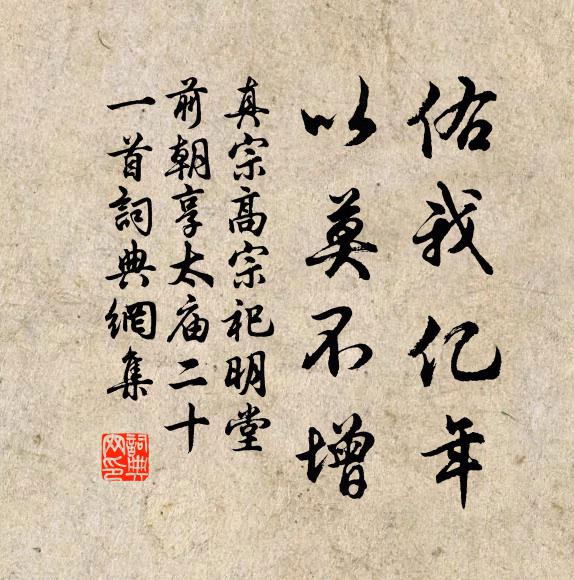 佑我亿年
以莫不增
真宗高宗祀明堂
前朝享太庙二十
一首詞典網集
詞典
网印